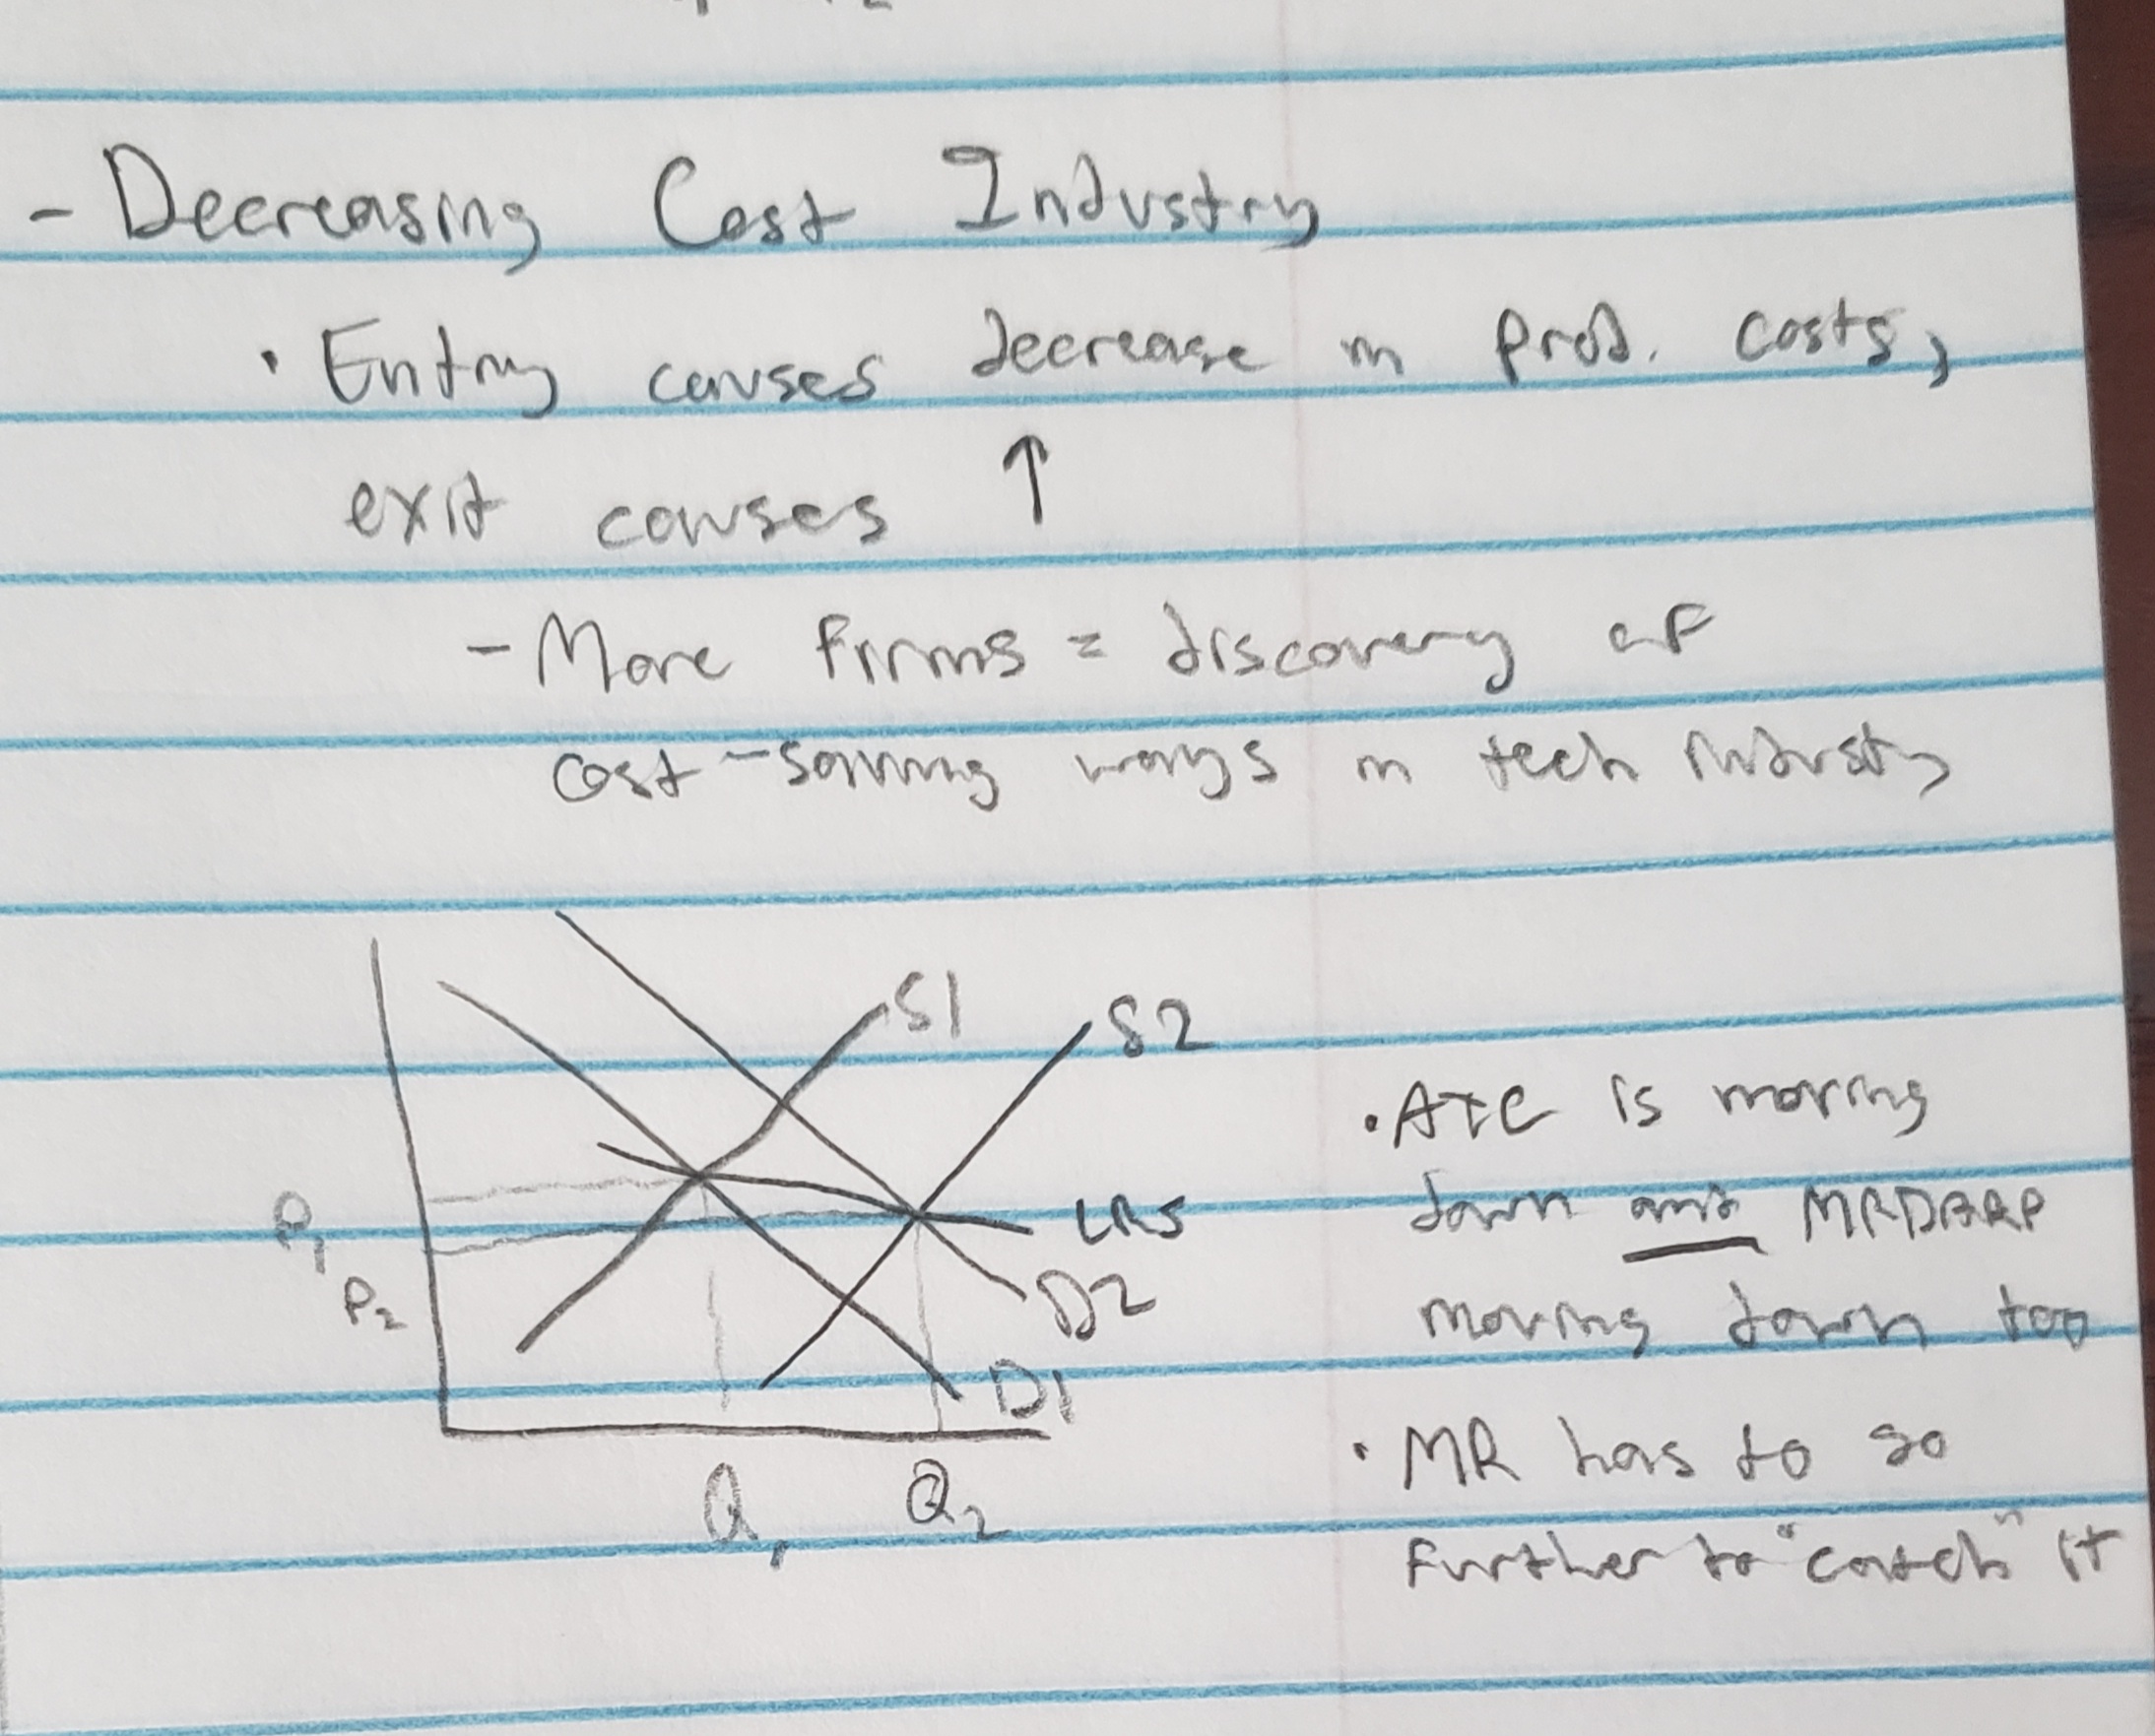 - Decreasing Cost Industry
· Entry causes decrease in prod. costs,
exit causes ↑
- More firms = discovery of
cost-saving ways in tech industry
S1
S2
· ATC is moving
down and MRDARP
moving down too
P1
LRS
P2
D2
D1
· MR has to go
further to "catch" it
Q1
Q2